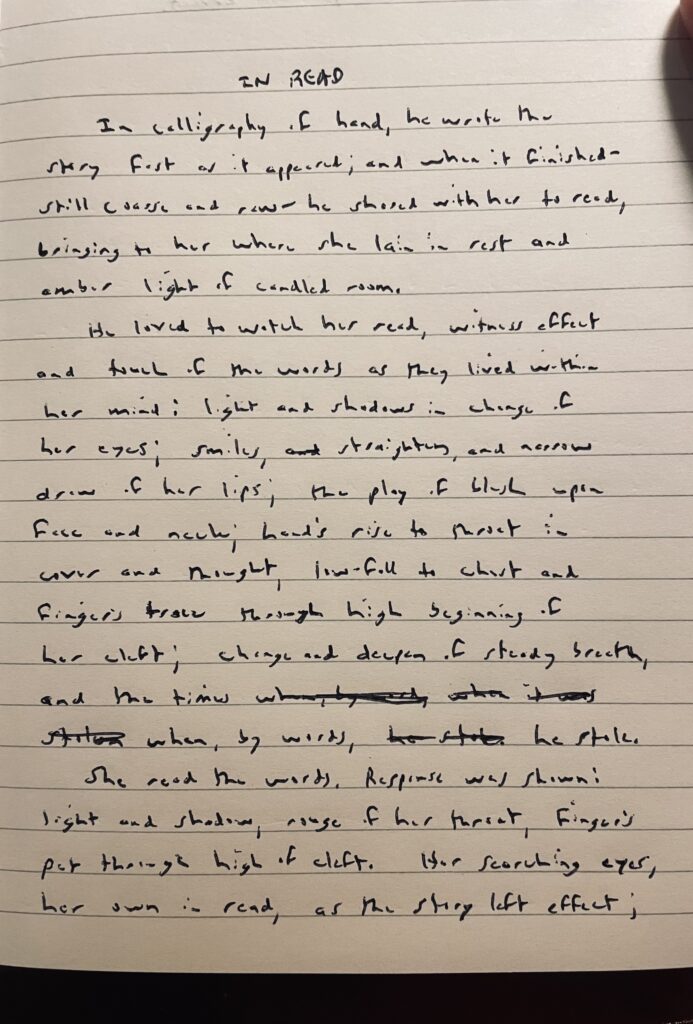 IN READ
In calligraphy of hand, he wrote the
story fast as it appeared; and when it finished-
still coarse and raw- he shared with her to read,
bringing to her where she lain in rest and
amber light of candled room.
He loved to watch her read, witness effect
and touch of the words as they lived within
her mind: light and shadows in change of
her eyes; smiles, and straighten, and narrow
draw of her lips; the play of blush upon
face and neck; hand's rise to throat in
cover and thought, low-fall to chest and
finger's trace through high beginning of
her cleft; change and deepen of steady breath,
and the times when, by word, when it was
stolen when, by words, he stole. he stole.
She read the words. Response was shown:
light and shadow, rouge of her throat, finger's
pet through high of cleft. Her searching eyes,
her own in read, as the story left effect;